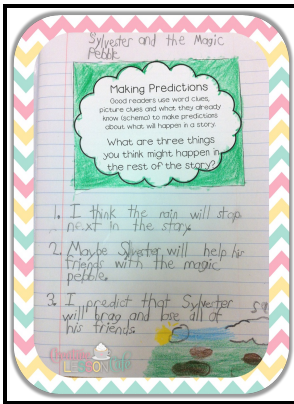 Sylvester and the Magic
Pebble
Making Predictions
Good readers use word clues,
picture clues and what they already
know (schema) to make predictions
about what will happen in a story.
What are three things
you think might happen in
the rest of the story?
1. I think the rain will stop
next in the story.
2. Maybe Sylvester will help his
friends with the magic
pebble.
3. I predict that Sylvester
will brag and lose all of
his friends.